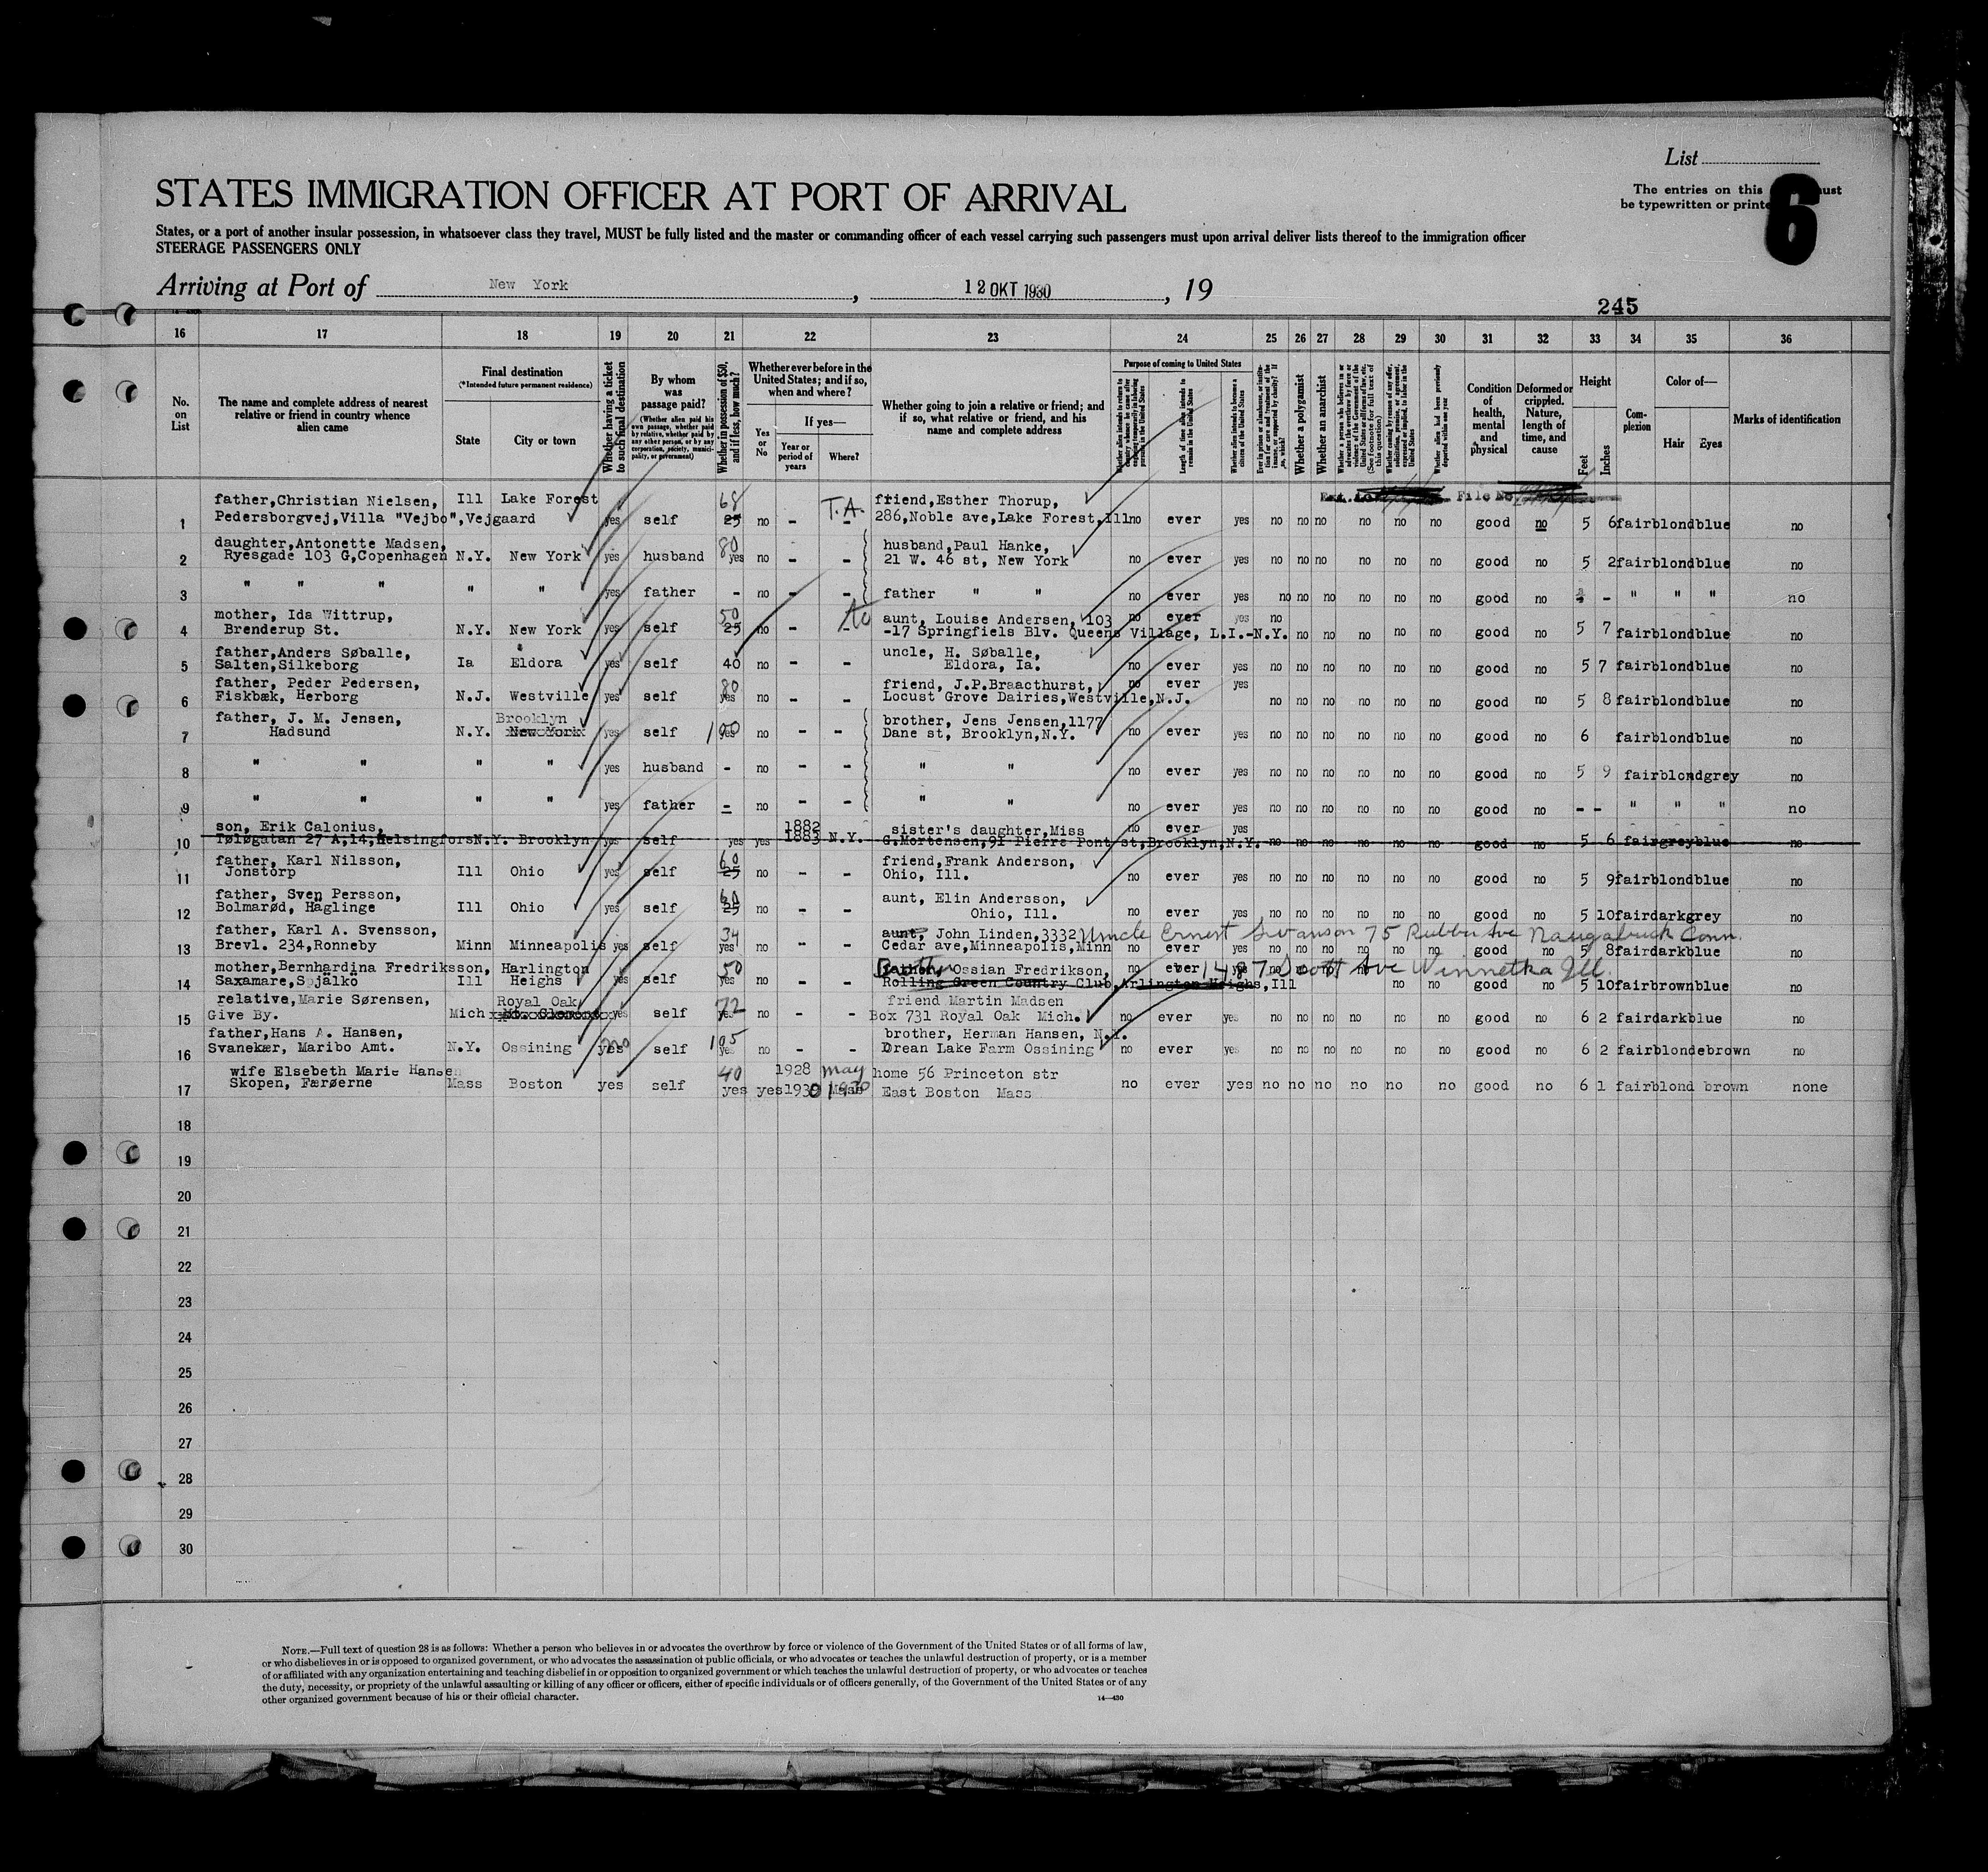 List
The entries on this
must
be typewritten or
6
STATES IMMIGRATION OFFICER AT PORT OF ARRIVAL
States, or a port of another insular possession, in whatsoever class they travel, MUST be fully listed and the master or commanding officer of each vessel carrying such passengers must upon arrival deliver lists thereof to the immigration officer
STEERAGE PASSENGERS ONLY
Arriving at Port of New York, 12 OKT 1930, 19
245
16 17 18 19 20 21 22 23 24 25 26 27 28 29 30 31 32 33 34 35 36
No. on List
The name and complete address of nearest relative or friend in country whence alien came
Final destination
(*Intended future permanent residence)
State
City or town
Whether having a ticket to such final destination
By whom was passage paid?
(Whether alien paid his own passage, whether paid by relative, whether paid by any other person, or by any corporation, society, municipality, or government)
Whether in possession of $50, and if less, how much?
Whether ever before in the United States; and if so, when and where?
Yes or No
If yes—
Year or period of years
Where?
Whether going to join a relative or friend; and if so, what relative or friend, and his name and complete address
Purpose of coming to United States
Length of time alien intends to remain in the United States
Whether alien intends to become a citizen of the United States
Whether a polygamist
Whether an anarchist
Condition of health, mental and physical
Deformed or crippled. Nature, length of time, and cause
Height
Feet
Inches
Complexion
Color of—
Hair
Eyes
Marks of identification
File No
father,Christian Nielsen, Ill Lake Forest 68 T.A. friend,Esther Thorup,
1 Pedersborgvej,Villa "Vejbo",Vejgaard yes self 25 no - - 286,Noble ave,Lake Forest,Ill no ever yes no no no no no no good no 5 6 fair blond blue no
daughter,Antonette Madsen, 80 husband,Paul Hanke,
2 Ryesgade 103 G,Copenhagen N.Y. New York yes husband yes no - - 21 W. 46 st, New York no ever yes no no no no no no good no 5 2 fair blond blue no
3 " " " " " yes father - no - - father " " no ever yes no no no no no no good no - " " " no
mother, Ida Wittrup, 50 to aunt, Louise Andersen, 103 no ever yes no
4 Brenderup St. N.Y. New York yes self 25 no - - -17 Springfiels Blv. Queens Village, L.I.-N.Y. no no no no no good no 5 7 fair blond blue no
father,Anders Søballe, uncle, H. Søballe,
5 Salten,Silkeborg Ia Eldora yes self 40 no - - Eldora, Ia. no ever yes no no no no no no good no 5 7 fair blond blue no
father, Peder Pedersen, 80 friend, J.P.Braacthurst, no ever yes
6 Fiskbæk, Herborg N.J. Westville yes self yes no - - Locust Grove Dairies,Westville,N.J. no no no no no no good no 5 8 fair blond blue no
father, J. M. Jensen, Brooklyn brother, Jens Jensen,1177
7 Hadsund N.Y. New York yes self 100 yes no - - Dane st, Brooklyn,N.Y. no ever yes no no no no no no good no 6 fair blond blue no
8 " " " " yes husband - no - - " " no ever yes no no no no no no good no 5 9 fair blond grey no
9 " " " " yes father - no - - " " no ever yes no no no no no no good no - - " " " no
son, Erik Calonius, 1882 sister's daughter,Miss no ever yes
10 Tøløgatan 27 A,14,Helsingfors N.Y. Brooklyn yes self yes yes 1883 N.Y. G.Mortensen,91 Pierre Pont st,Brooklyn,N.Y. no no no no no no good no 5 6 fair grey blue no
father, Karl Nilsson, 60 friend,Frank Anderson,
11 Jonstorp Ill Ohio yes self 25 no - - Ohio, Ill. no ever yes no no no no no no good no 5 9 fair blond blue no
father, Sven Persson, 60 aunt, Elin Andersson,
12 Bolmarød, Häglinge Ill Ohio yes self 25 no - - Ohio, Ill. no ever yes no no no no no no good no 5 10 fair dark grey no
father, Karl A. Svensson, 34 aunt, John Linden,3332 Uncle Ernest Swanson 75 Rubber Ave Naugatuck Conn.
13 Brevl. 234,Ronneby Minn Minneapolis yes self yes no - - Cedar ave,Minneapolis,Minn no ever yes no no no no no no good no 5 8 fair dark blue no
mother,Bernhardina Fredriksson, Harlington 50 Brother Ossian Fredrikson, no ever yes no 1487 Scott Ave Winnetka Ill.
14 Saxamare,Spjälkö Ill Heighs yes self yes no - - Rolling Green Country Club,Arlington Heighs,Ill no no good no 5 10 fair brown blue no
relative,Marie Sørensen, Royal Oak 72 friend Martin Madsen
15 Give By. Mich yes self yes no - - Box 731 Royal Oak Mich. no ever yes no no no no no no good no 6 2 fair dark blue no
father,Hans A. Hansen, 105 brother, Herman Hansen, N.Y.
16 Svanekær, Maribo Amt. N.Y. Ossining yes no self yes no - - Drean Lake Farm Ossining no ever yes no no no no no no good no 6 2 fair blonde brown no
wife Elsebeth Marie Hansen 40 1928 may home 56 Princeton str
17 Skopen, Færøerne Mass Boston yes self yes yes 1930 1930 Mass East Boston Mass no ever yes no no no no no no good no 6 1 fair blond brown none
18
19
20
21
22
23
24
25
26
27
28
29
30
NOTE.—Full text of question 28 is as follows: Whether a person who believes in or advocates the overthrow by force or violence of the Government of the United States or of all forms of law,
or who disbelieves in or is opposed to organized government, or who advocates the assassination of public officials, or who advocates or teaches the unlawful destruction of property, or is a member
of or affiliated with any organization entertaining and teaching disbelief in or opposition to organized government or which teaches the unlawful destruction of property, or who advocates or teaches
the duty, necessity, or propriety of the unlawful assaulting or killing of any officer or officers, either of specific individuals or of officers generally, of the Government of the United States or of any
other organized government because of his or their official character.
14—430